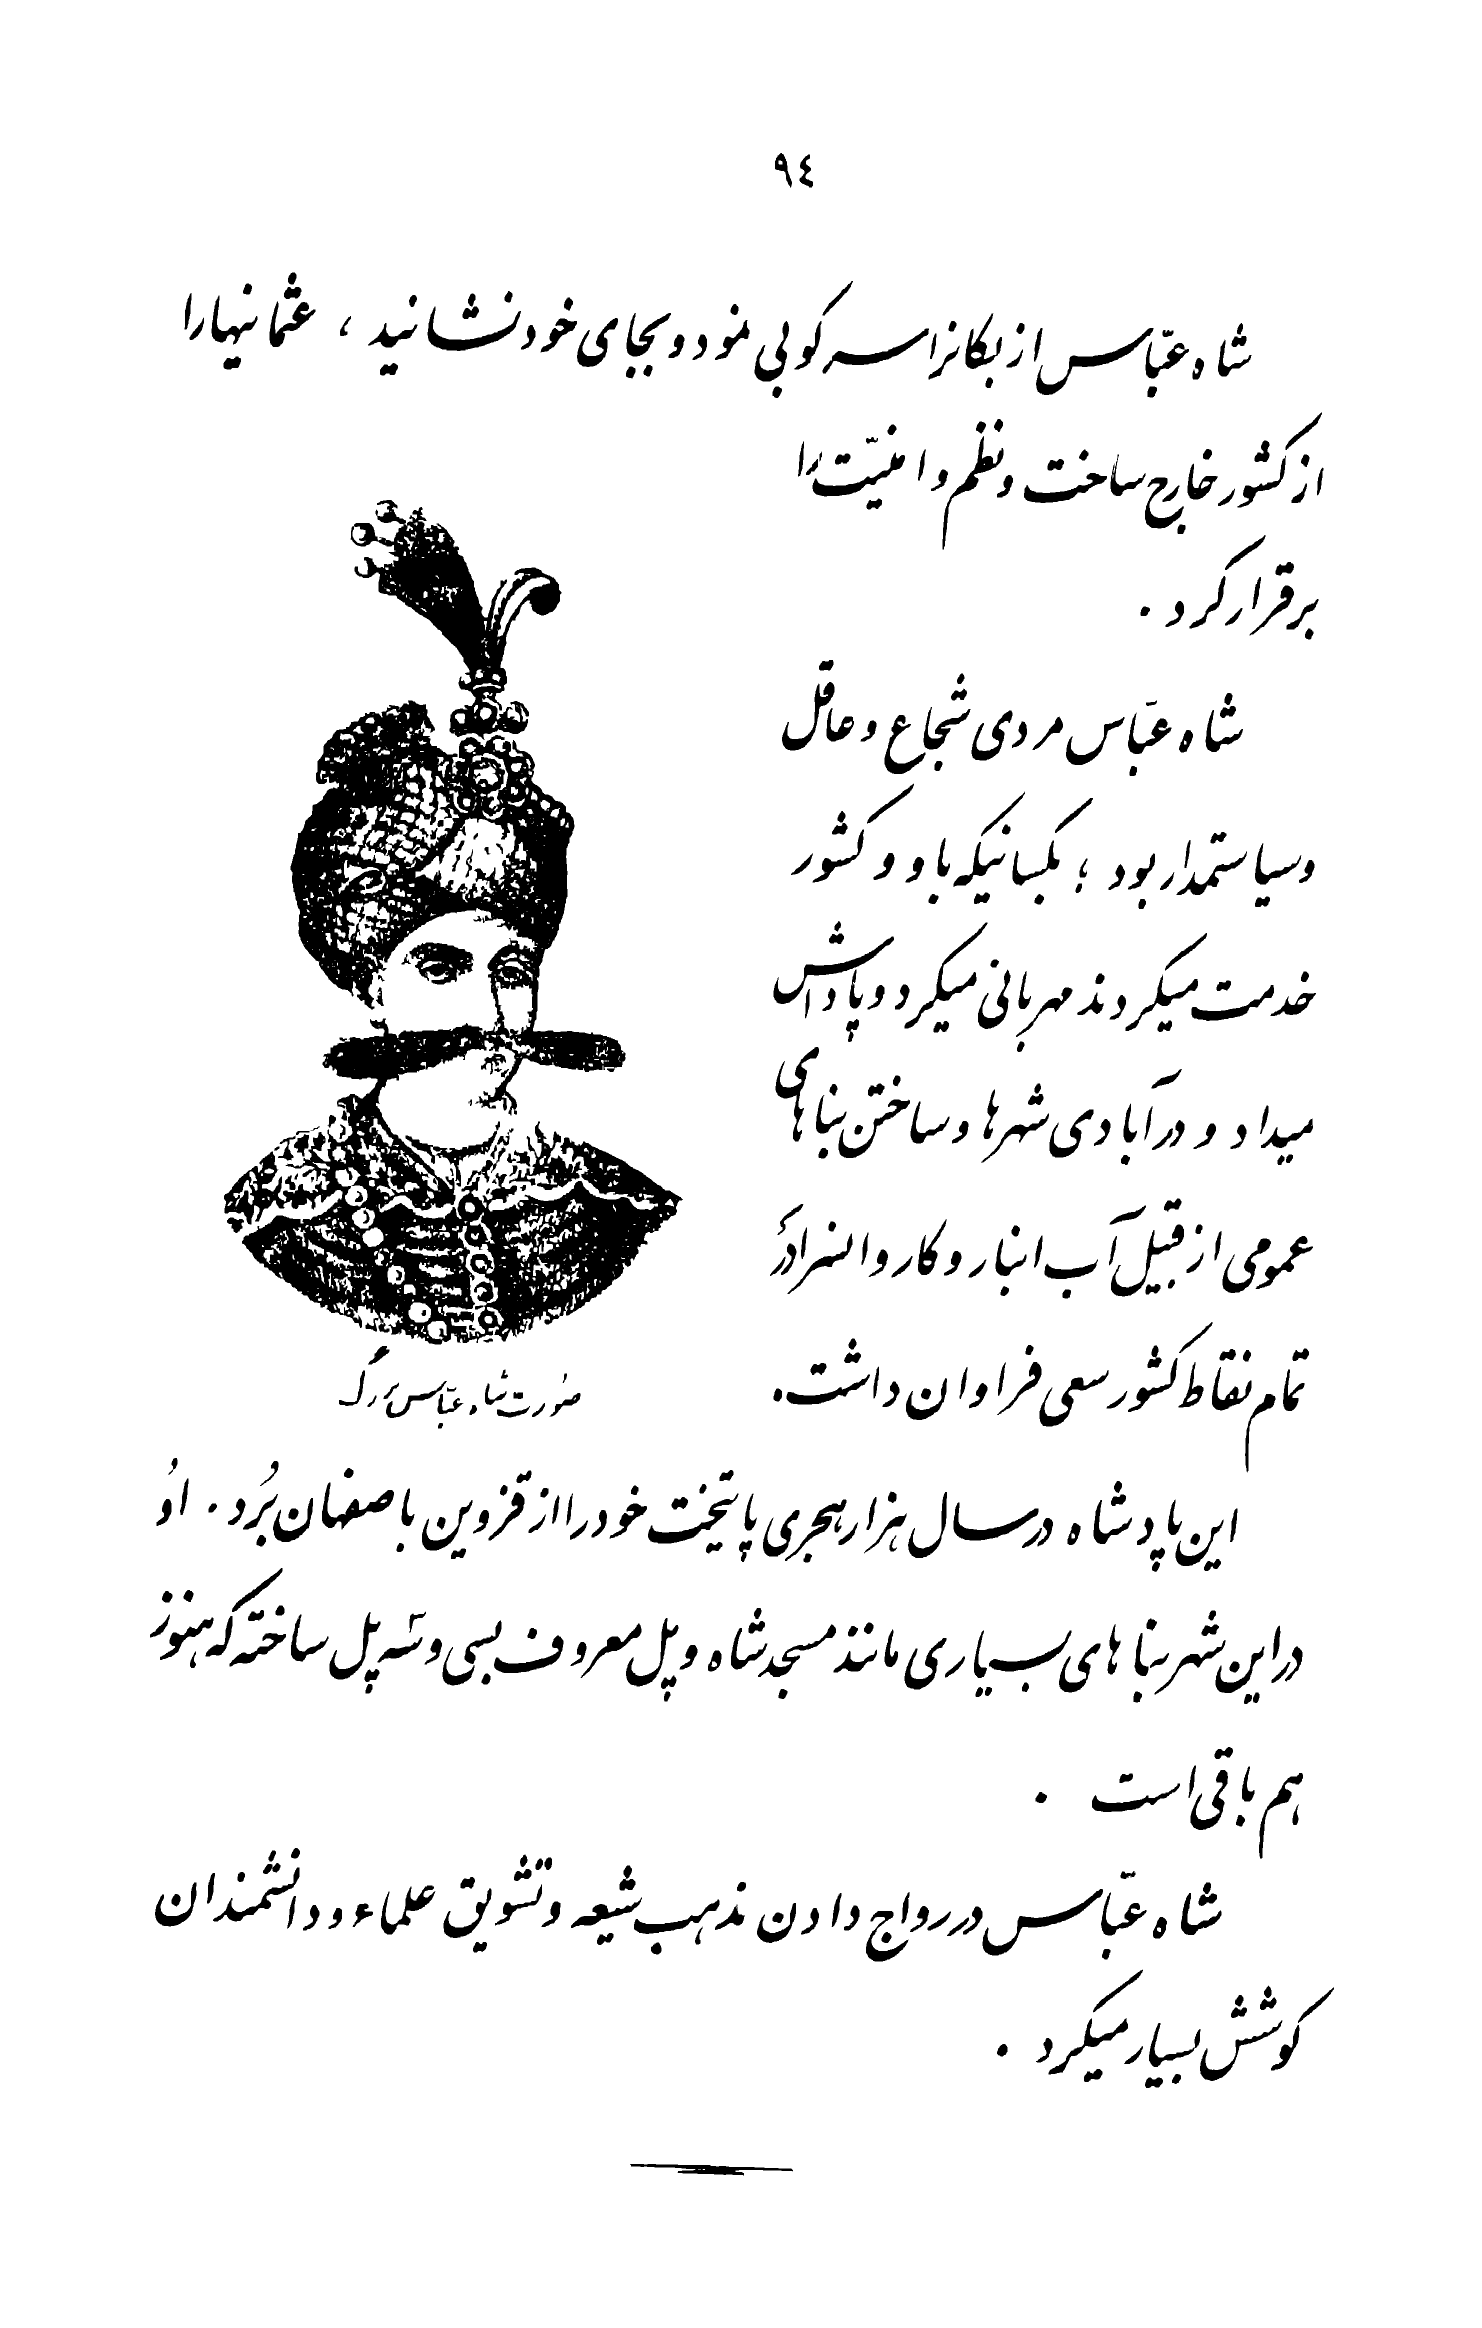 ٩٤
شاه عبّاس ازبکانرا سرکوبی نمود و بجای خود نشانید ، عثمانیها را
از کشور خارج ساخت و نظم و امنیّت را
برقرار کرد .
شاه عبّاس مردی شجاع و عاقل
و سیاستمدار بود ؛ بکسانیکه باو و کشور
خدمت میکردند مهربانی میکرد و پاداش
میداد و در آبادی شهرها و ساختن بناهای
عمومی از قبیل آب انبار و کاروانسرا در
تمام نقاط کشور سعی فراوان داشت.
صورت شاه عبّاس بزرگ
این پادشاه در سال هزار هجری پایتخت خود را از قزوین باصفهان بُرد . اوُ
در این شهر بناهای بسیاری مانند مسجد شاه و پل معروف بسی و سه پل ساخته که هنوز
هم باقی است .
شاه عبّاس در رواج دادن مذهب شیعه و تشویق علماء و دانشمندان
کوشش بسیار میکرد .